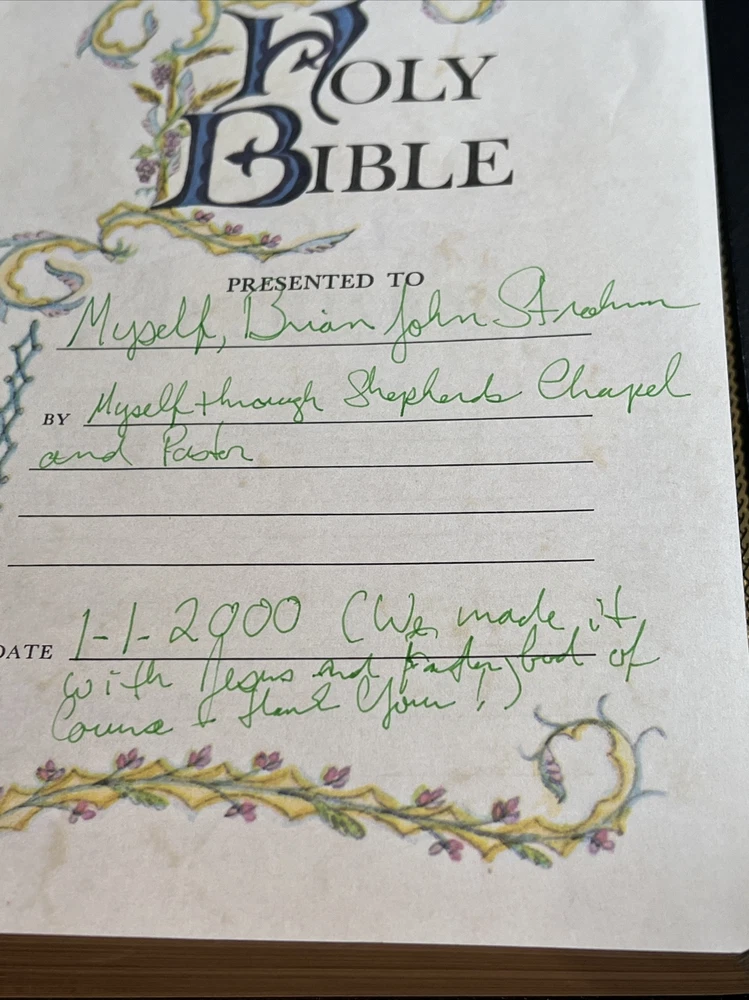 HOLY
BIBLE
PRESENTED TO
Myself, Brian John
BY Myself through Shepherds Chapel
and Pastor
DATE 1-1-2000 (We made it
with Jesus and God of
Course + thank You!)